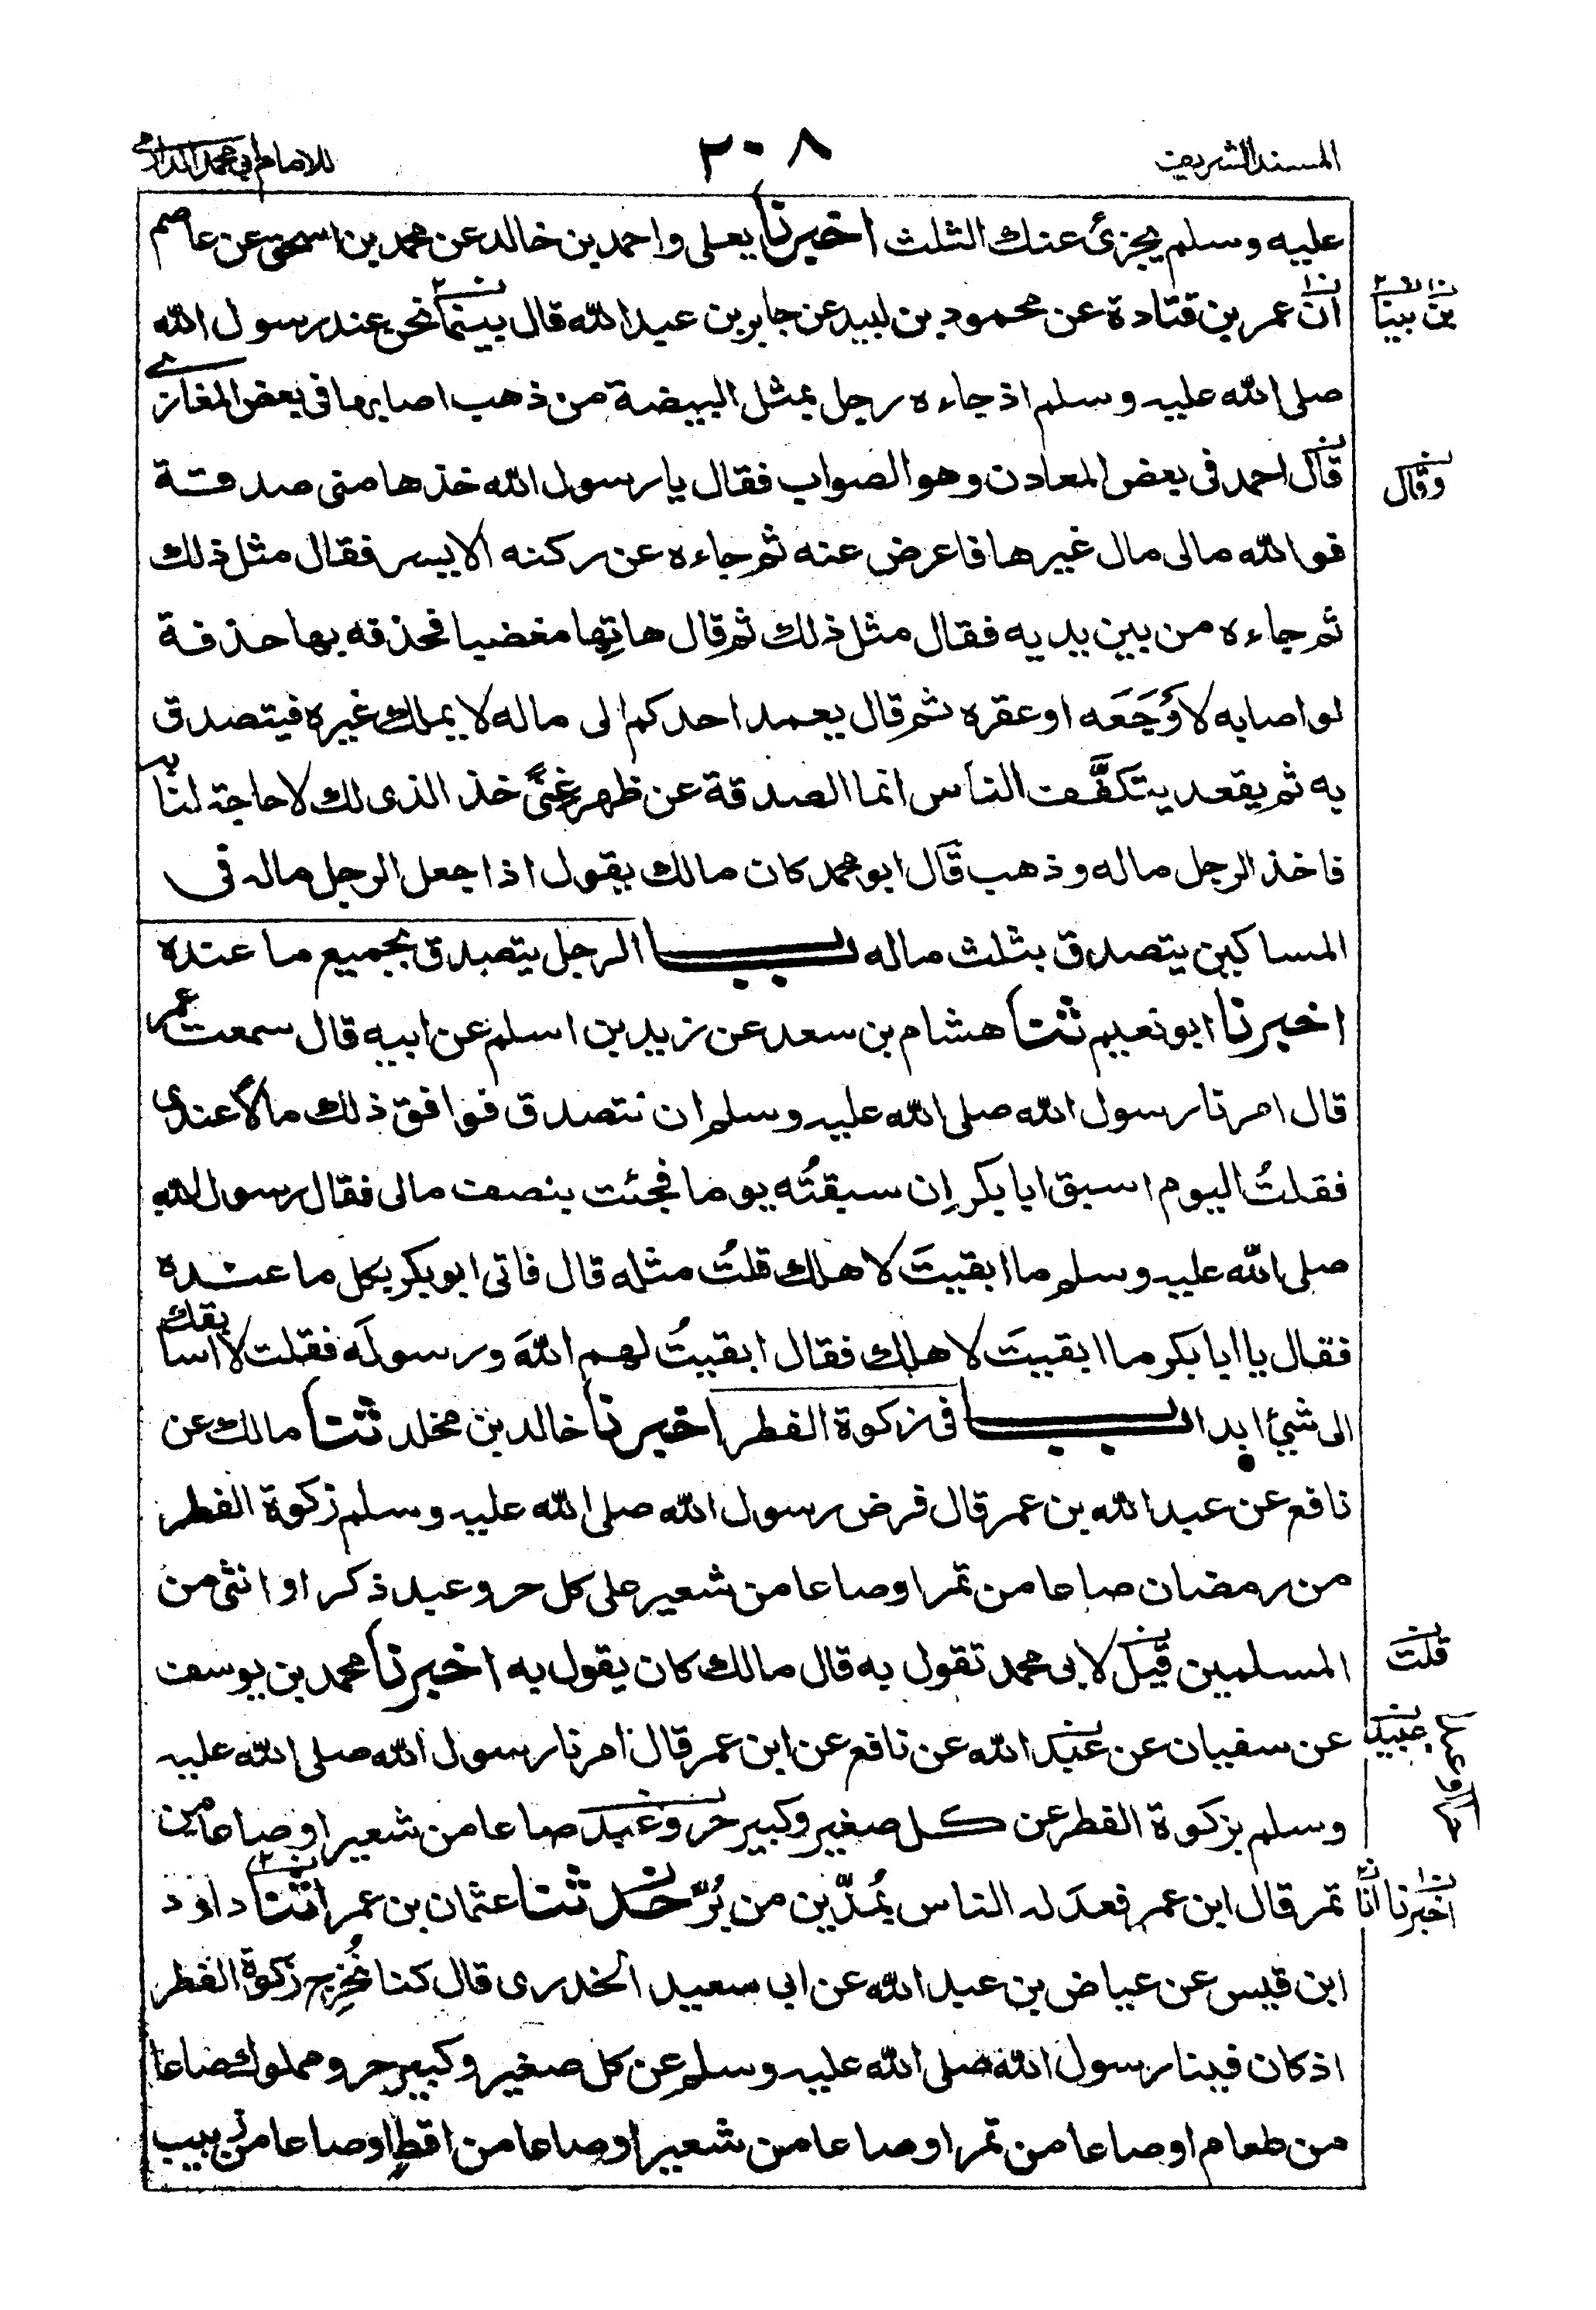 المسند الشريف
٢٠٨
للامام ابی محمد الدارمی
علیه وسلم یجزئ عنك الثلث اخبرنا یعلی واحمد بن خالد عن محمد بن اسحق عن عاصم
ان عمر بن قتادة عن محمود بن لبید عن جابر بن عبد الله قال بینما نحن عند رسول الله
صلی الله علیه وسلم اذ جاءه رجل بمثل البیضة من ذهب اصابها فی بعض المغازی
قال احمد فی بعض المعادن وهو الصواب فقال یا رسول الله خذها منی صدقة
فوالله مالی مال غیرها فاعرض عنه ثم جاءه عن رکنه الایسر فقال مثل ذلك
ثم جاءه من بین یدیه فقال مثل ذلك ثم قال هاتِها مغضبا فحذفه بها حذفة
لو اصابه لاَوْجَعَه او عقره ثم قال یعمد احدکم الی ماله لا یملك غیره فیتصدق
به ثم یقعد یتکفَّف الناس انما الصدقة عن ظهر غِنًی خذ الذی لك لا حاجة لنا به
فاخذ الرجل ماله وذهب قال ابو محمد کان مالك یقول اذا جعل الرجل ماله فی
المساکین یتصدق بثلث ماله باب الرجل یتصدق بجمیع ما عنده
اخبرنا ابو نعیم ثنا هشام بن سعد عن زید بن اسلم عن ابیه قال سمعت عمر
قال امرنا رسول الله صلی الله علیه وسلم ان نتصدق فوافق ذلك مالاً عندی
فقلتُ الیوم اسبق ابا بکر اِن سبقتُه یوما فجئت بنصف مالی فقال رسول الله
صلی الله علیه وسلم ما ابقیتَ لاهلك قلتُ مثله قال فاتی ابو بکر بکل ما عنده
فقال یا ابا بکر ما ابقیتَ لاهلك فقال ابقیتُ لهم اللهَ ورسولَه فقلت لا اسابقك
الی شیئ ابدا باب فی زکوة الفطر اخبرنا خالد بن مخلد ثنا مالك عن
نافع عن عبد الله بن عمر قال فرض رسول الله صلی الله علیه وسلم زکوة الفطر
من رمضان صاعا من تمر او صاعا من شعیر علی کل حر وعبد ذکر او انثی من
المسلمین قیل لابی محمد تقول به قال مالك کان یقول به اخبرنا محمد بن یوسف
عن سفیان عن عبد الله عن نافع عن ابن عمر قال امرنا رسول الله صلی الله علیه
وسلم بزکوة الفطر عن کل صغیر وکبیر حر وعبد صاعا من شعیر او صاعا من
تمر قال ابن عمر فعدَله الناس بمُدّین من بُرّ حدثنا عثمان بن عمر انا ثنا داؤد
ابن قیس عن عیاض بن عبد الله عن ابی سعید الخدری قال کنا نُخرِج زکوة الفطر
اذ کان فینا رسول الله صلی الله علیه وسلم عن کل صغیر وکبیر حر ومملوك صاعا
من طعام او صاعا من تمر او صاعا من شعیر او صاعا من اقطٍ او صاعا من زبیب
بن بینا
وقال
قلت
عبید
اخبرنا انا